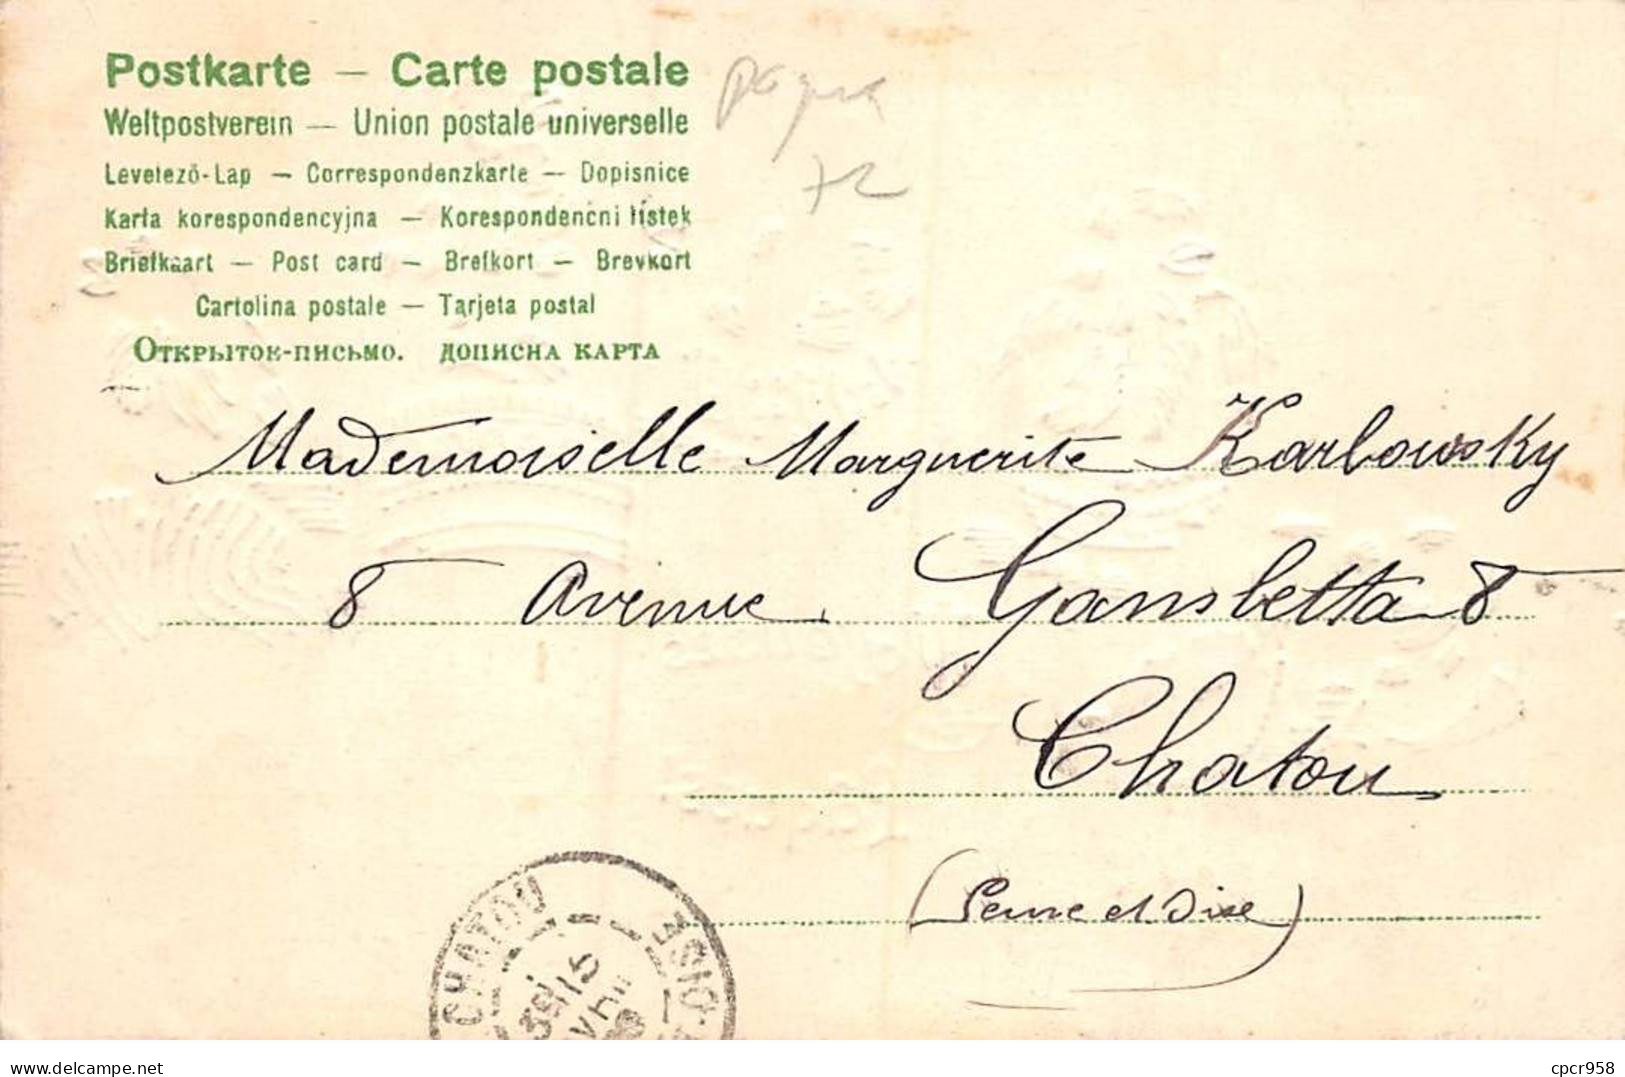 Postkarte — Carte postale
Weltpostverein — Union postale universelle
Levelező-Lap — Correspondenzkarte — Dopisnice
Karta korespondencyjna — Korespondenčni lístek
Briefkaart — Post card — Brefkort — Brevkort
Cartolina postale — Tarjeta postal
Открыток-письмо. дописна карта
72
Mademoiselle Marguerite Karlowsky
8 Avenue Gambetta 8
Chatou
(Seine et Oise)
CHATOU
OISE
delcampe.net
cpcr958